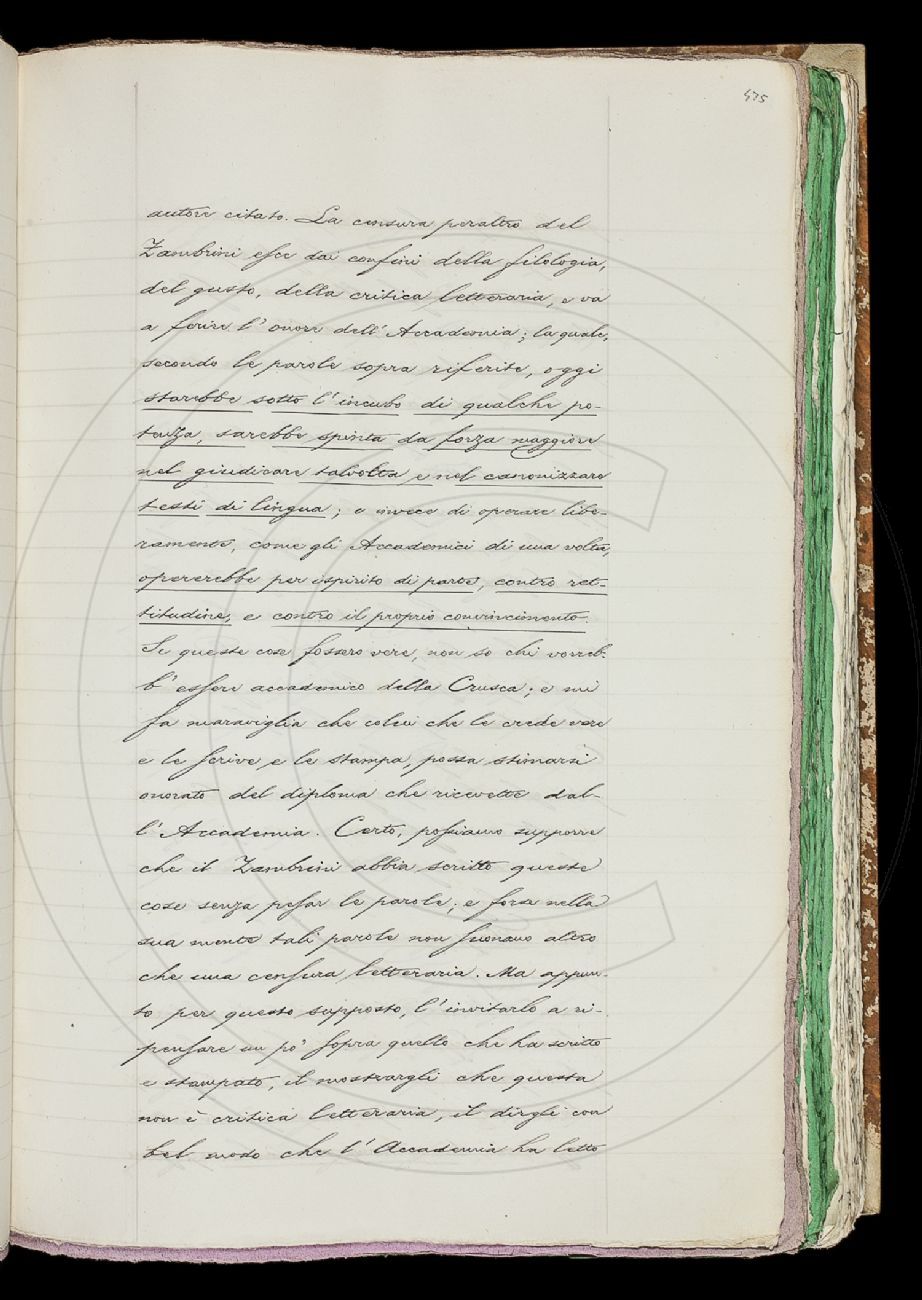 475
autore citato. La censura peraltro del
Zambrini esce dai confini della filologia,
del gusto, della critica letteraria, e va
a ferire l'onore dell'Accademia; la quale,
secondo le parole sopra riferite, oggi
starebbe sotto l'incubo di qualche po-
tenza, sarebbe spinta da forza maggiore
nel giudicare talvolta e nel canonizzare
testi di lingua; e invece di operare libe-
ramente, come gli Accademici di una volta,
opererebbe per ispirito di parte, contro ret-
titudine, e contro il proprio convincimento.
Se queste cose fossero vere, non so chi vorreb-
b'essere accademico della Crusca; e mi
fa maraviglia che colui che le crede vere
e le scrive e le stampa, possa stimarsi
onorato del diploma che ricevette dal-
l'Accademia. Certo, possiamo supporre
che il Zambrini abbia scritto queste
cose senza pesar le parole; e forse nella
sua mente tali parole non suonano altro
che una censura letteraria. Ma appun-
to per questo supposto, l'invitarlo a ri-
pensare un po' sopra quello che ha scritto
e stampato, il mostrargli che questa
non è critica letteraria, il dirgli con
bel modo che l'Accademia ha letto